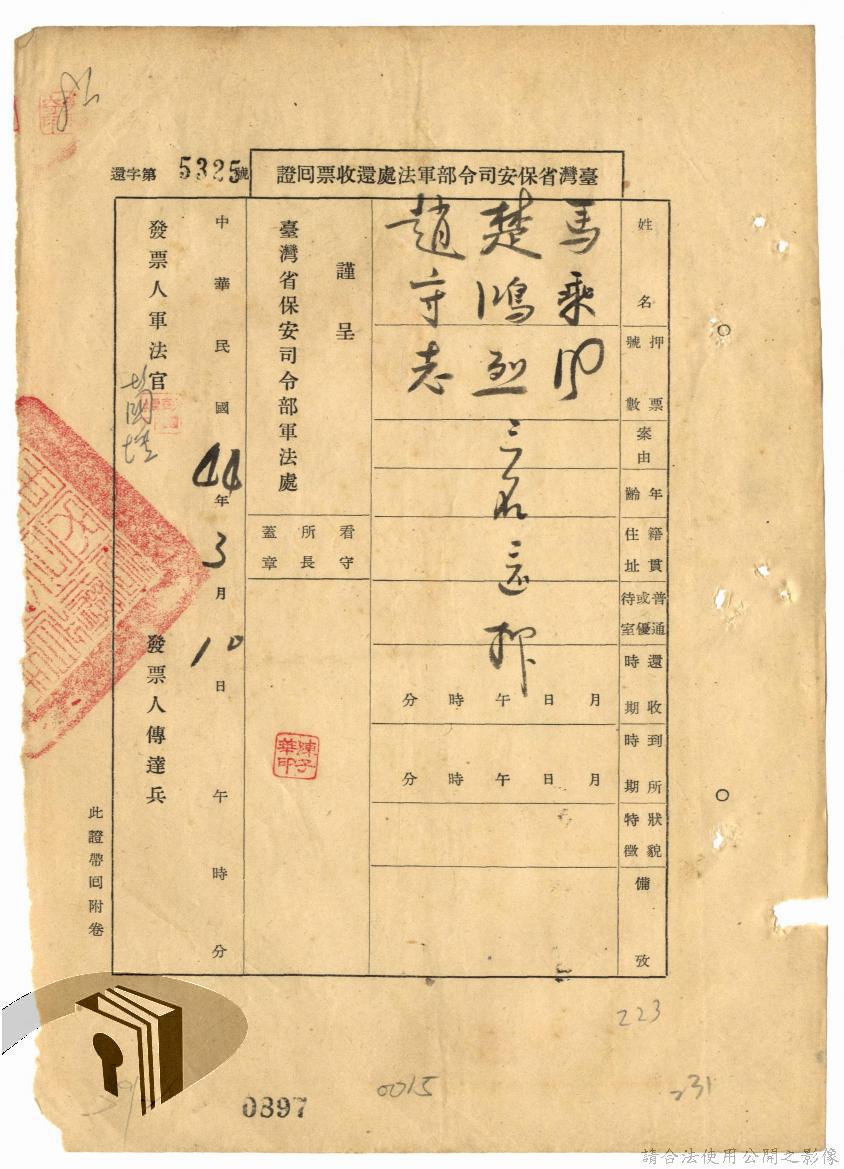 臺灣省保安司令部軍法處還收票囘證
還字第5325號
姓名
押票號數
案由
年齡
籍貫住址
普通或優待室
還收時期
到所時期
狀貌特徵
備攷
馬乘風
楚鴻烈
趙守志
三名還押
月日午時分
月日午時分
謹呈
臺灣省保安司令部軍法處
看守所長蓋章
陳子華印
中華民國44年3月10日午時分
發票人軍法官
發票人傳達兵
此證帶囘附卷
223
0015
231
0897
請合法使用公開之影像